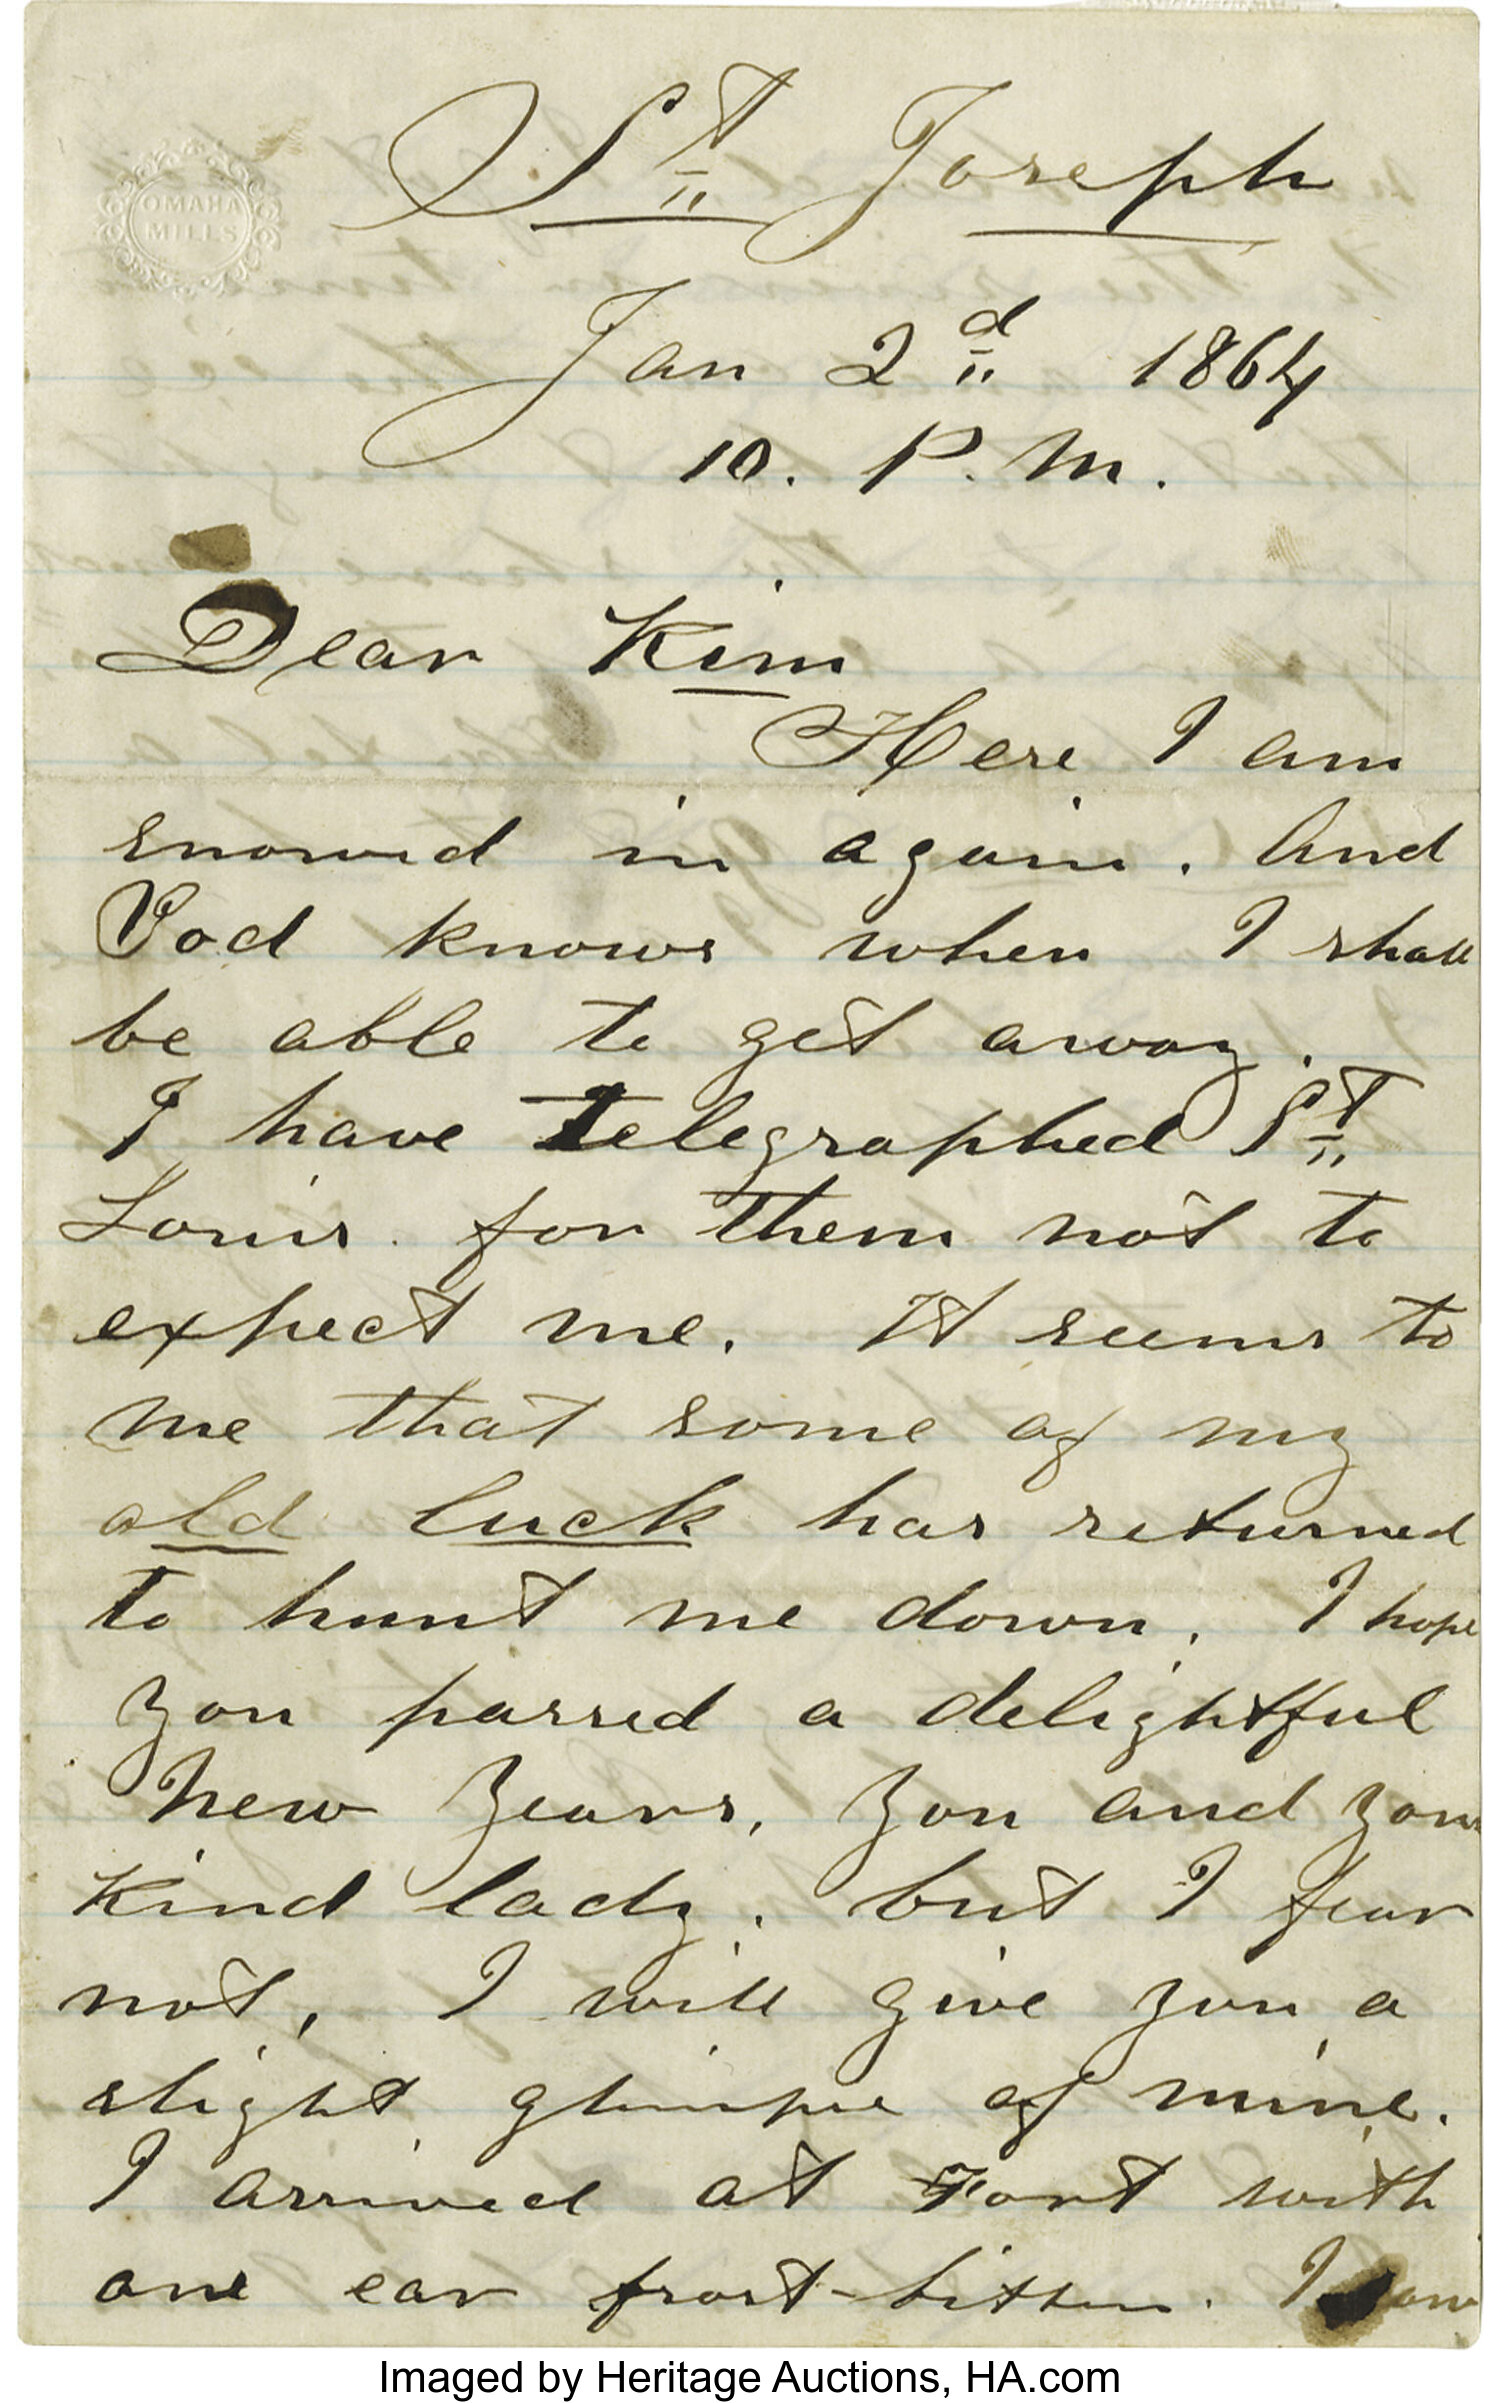 OMAHA
MILLS
St Joseph
Jan 2d 1864
10. P.M.
Dear Kim
Here I am
snowed in again. And
God knows when I shall
be able to get away.
I have telegraphed St
Louis. for them not to
expect me. It seems to
me that some of my
old luck has returned
to hunt me down. I hope
you passed a delightful
New Years, you and your
kind lady. but I fear
not, I will give you a
slight glimpse of mine.
I arrived at Fort with
one ear frost-bitten. I
Imaged by Heritage Auctions, HA.com